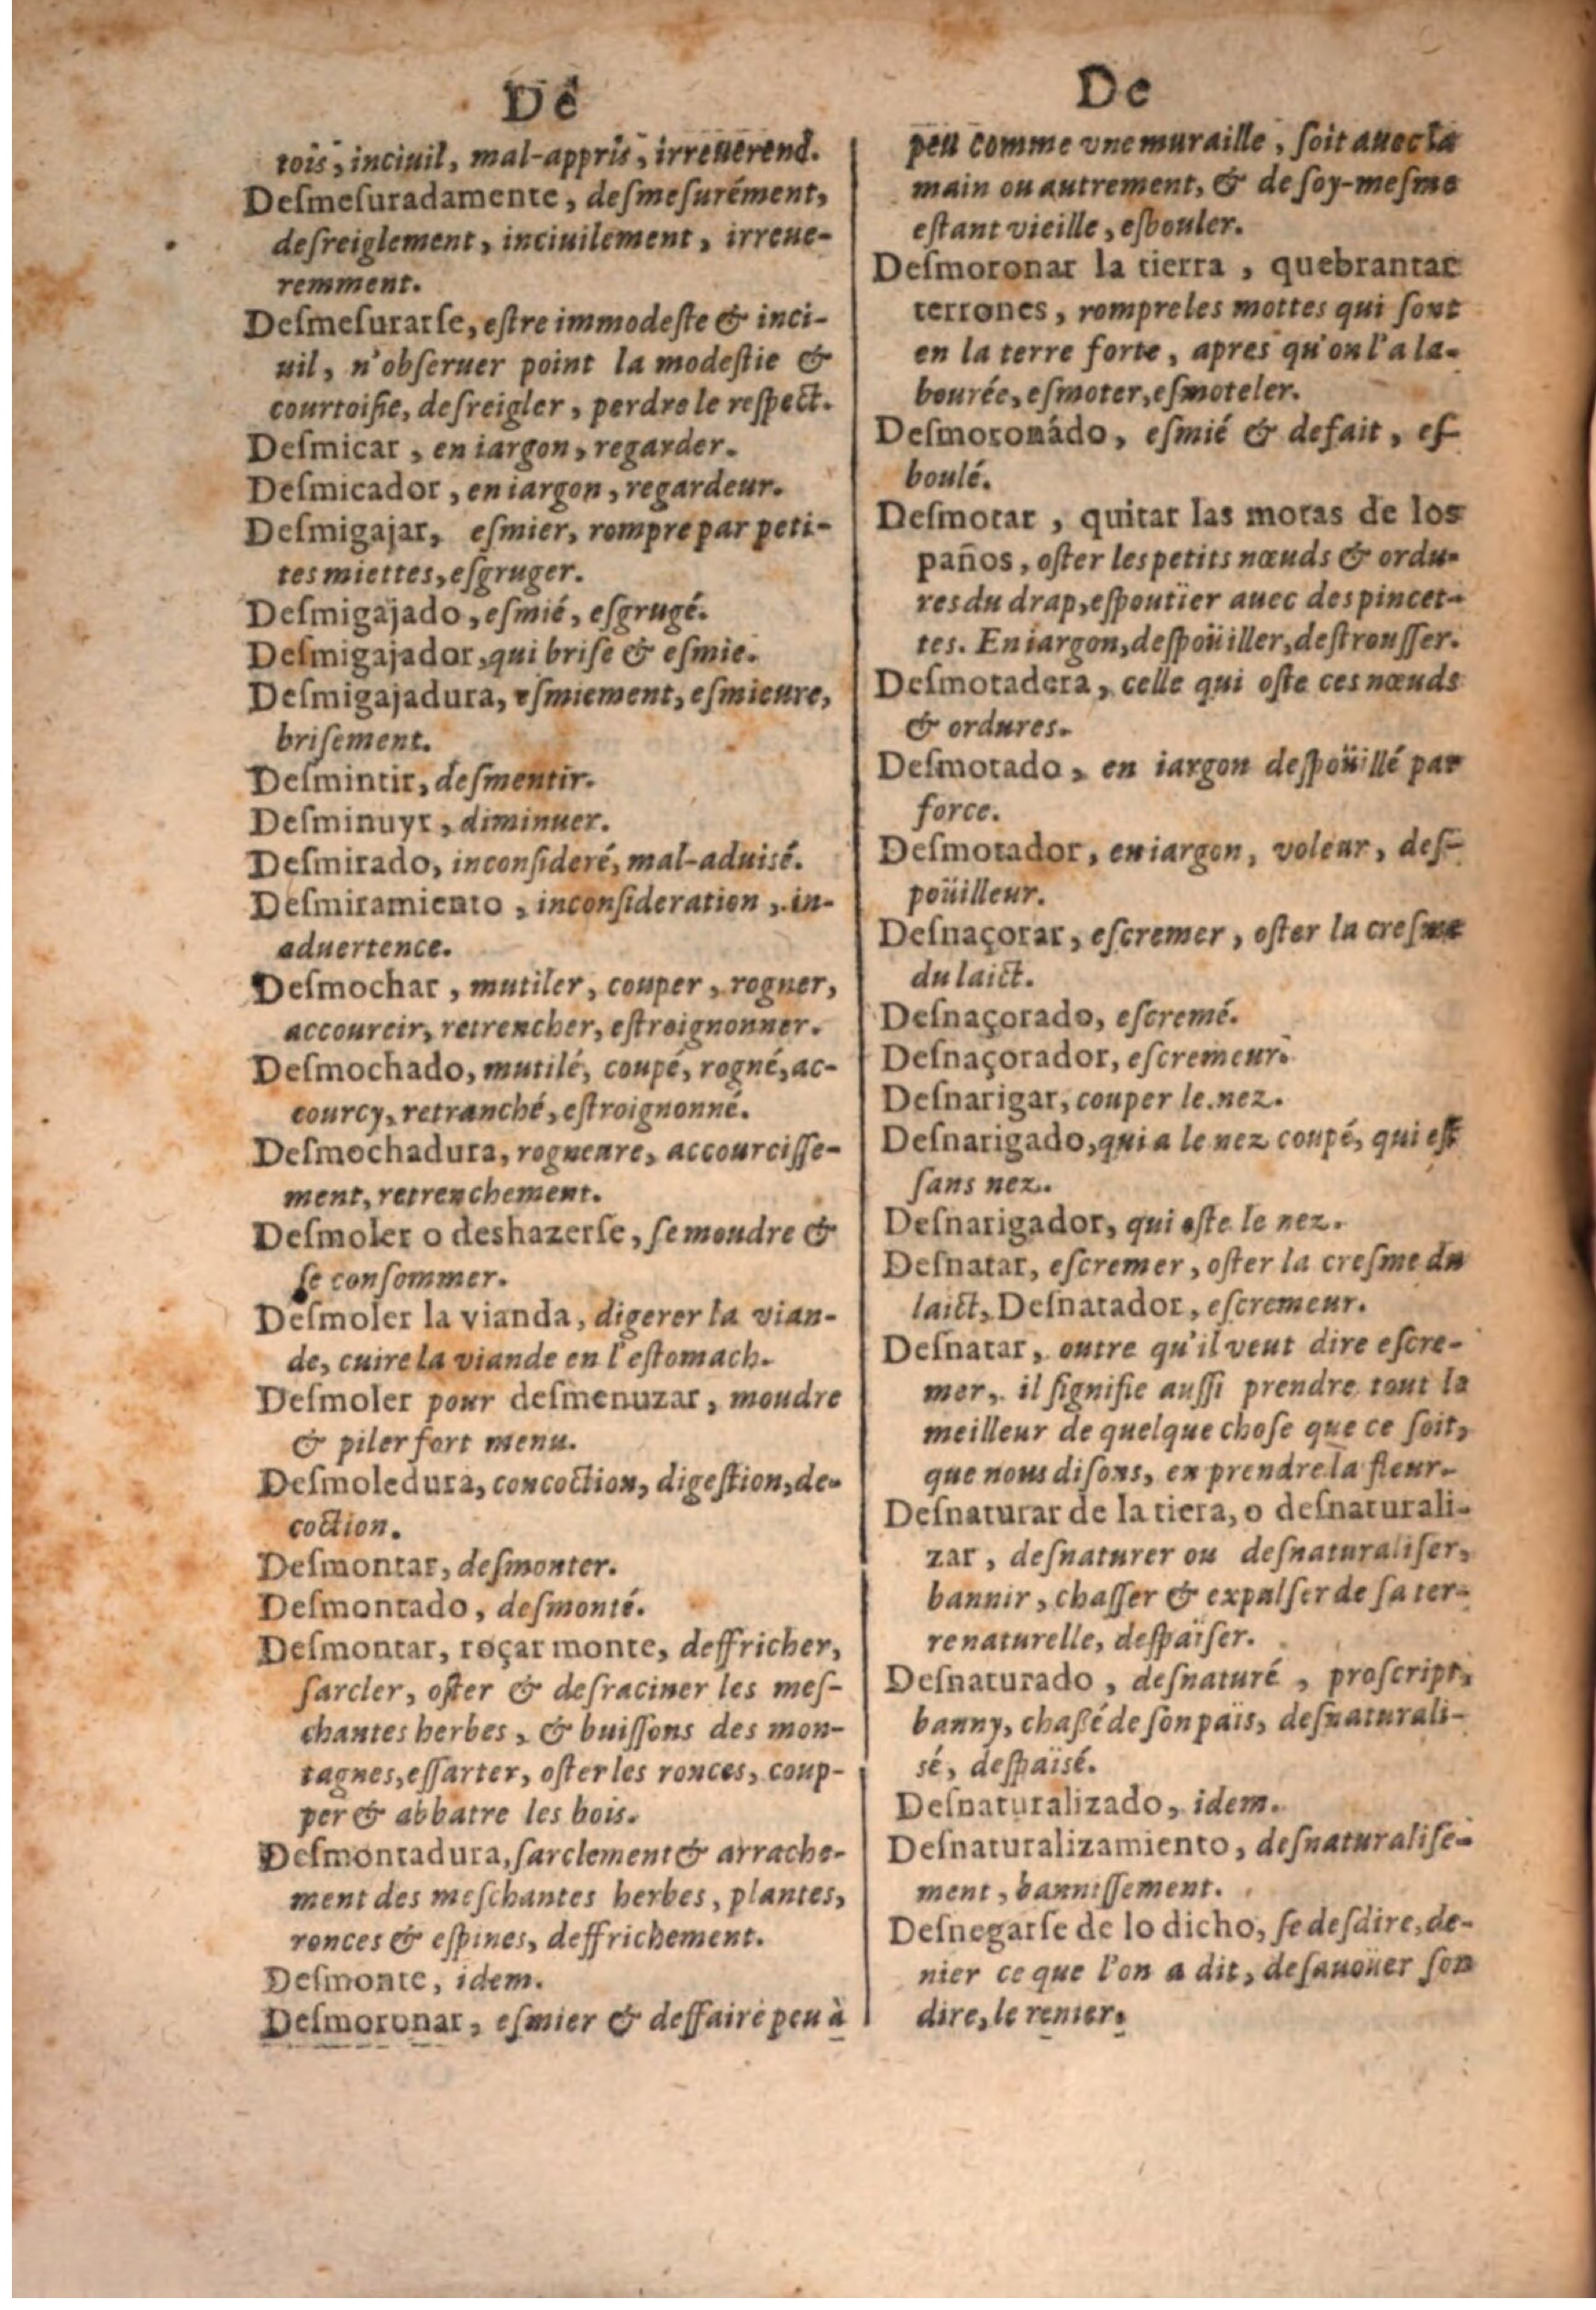 De
tois, inciuil, mal-appris, irreuerend.
Deſmeſuradamente, deſmeſurément,
deſreiglement, inciuilement, irreue-
remment.
Deſmeſurarſe, eſtre immodeſte & inci-
uil, n'obſeruer point la modeſtie &
courtoiſie, deſreigler, perdre le reſpect.
Deſmicar, en iargon, regarder.
Deſmicador, en iargon, regardeur.
Deſmigajar, eſmier, rompre par peti-
tes miettes, eſgruger.
Deſmigajado, eſmié, eſgrugé.
Deſmigajador, qui briſe & eſmie.
Deſmigajadura, eſmiement, eſmieure,
briſement.
Deſmintir, deſmentir.
Deſminuyr, diminuer.
Deſmirado, inconſideré, mal-aduisé.
Deſmiramiento, inconſideration, in-
aduertence.
Deſmochar, mutiler, couper, rogner,
accourcir, retrencher, eſtroignonner.
Deſmochado, mutilé, coupé, rogné, ac-
courcy, retranché, eſtroignonné.
Deſmochadura, rogneure, accourciſſe-
ment, retrenchement.
Deſmoler o deshazerſe, ſe moudre &
ſe conſommer.
Deſmoler la vianda, digerer la vian-
de, cuire la viande en l'eſtomach.
Deſmoler pour deſmenuzar, moudre
& piler fort menu.
Deſmoledura, concoction, digeſtion, de-
coction.
Deſmontar, deſmonter.
Deſmontado, deſmonté.
Deſmontar, roçar monte, deffricher,
ſarcler, oſter & deſraciner les meſ-
chantes herbes, & buiſſons des mon-
tagnes, eſſarter, oſter les ronces, coup-
per & abbatre les bois.
Deſmontadura, ſarclement & arrache-
ment des meſchantes herbes, plantes,
ronces & eſpines, deffrichement.
Deſmonte, idem.
Deſmoronar, eſmier & deffaire peu à
De
peu comme vne muraille, ſoit auec la
main ou autrement, & de ſoy-meſme
eſtant vieille, eſbouler.
Deſmoronar la tierra, quebrantar
terrones, rompre les mottes qui ſont
en la terre forte, apres qu'on l'a la-
bourée, eſmoter, eſmoteler.
Deſmoronádo, eſmié & defait, eſ-
boulé.
Deſmotar, quitar las motas de los
paños, oſter les petits nœuds & ordu-
res du drap, eſpoutier auec des pincet-
tes. En iargon, deſpoüiller, deſtrouſſer.
Deſmotadera, celle qui oſte ces nœuds
& ordures.
Deſmotado, en iargon deſpoüillé par
force.
Deſmotador, en iargon, voleur, deſ-
poüilleur.
Deſnaçorar, eſcremer, oſter la creſme
du laict.
Deſnaçorado, eſcremé.
Deſnaçorador, eſcremeur.
Deſnarigar, couper le nez.
Deſnarigado, qui a le nez coupé, qui eſt
ſans nez.
Deſnarigador, qui oſte le nez.
Deſnatar, eſcremer, oſter la creſme du
laict, Deſnatador, eſcremeur.
Deſnatar, outre qu'il veut dire eſcre-
mer, il ſignifie auſſi prendre tout le
meilleur de quelque choſe que ce ſoit,
que nous diſons, en prendre la fleur.
Deſnaturar de la tiera, o deſnaturali-
zar, deſnaturer ou deſnaturaliſer,
bannir, chaſſer & expulſer de ſa ter-
re naturelle, deſpaïſer.
Deſnaturado, deſnaturé, proſcript,
banny, chaßé de ſon païs, deſnaturali-
sé, deſpaïsé.
Deſnaturalizado, idem.
Deſnaturalizamiento, deſnaturaliſe-
ment, banniſſement.
Deſnegarſe de lo dicho, ſe deſdire, de-
nier ce que l'on a dit, deſauoüer ſon
dire, le renier.